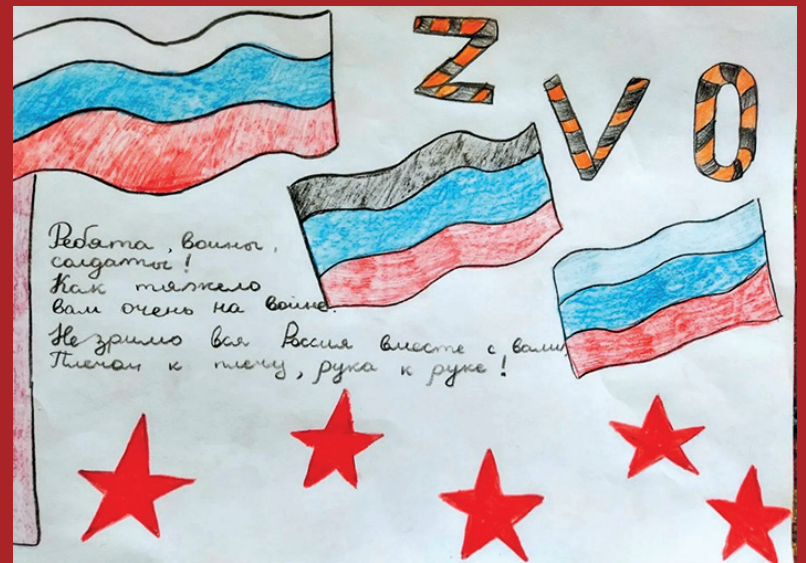 Z V O
Ребята, воины,
солдаты!
Как тяжело
вам очень на войне.
Незримо вся Россия вместе с вами,
Плечом к плечу, рука к руке!